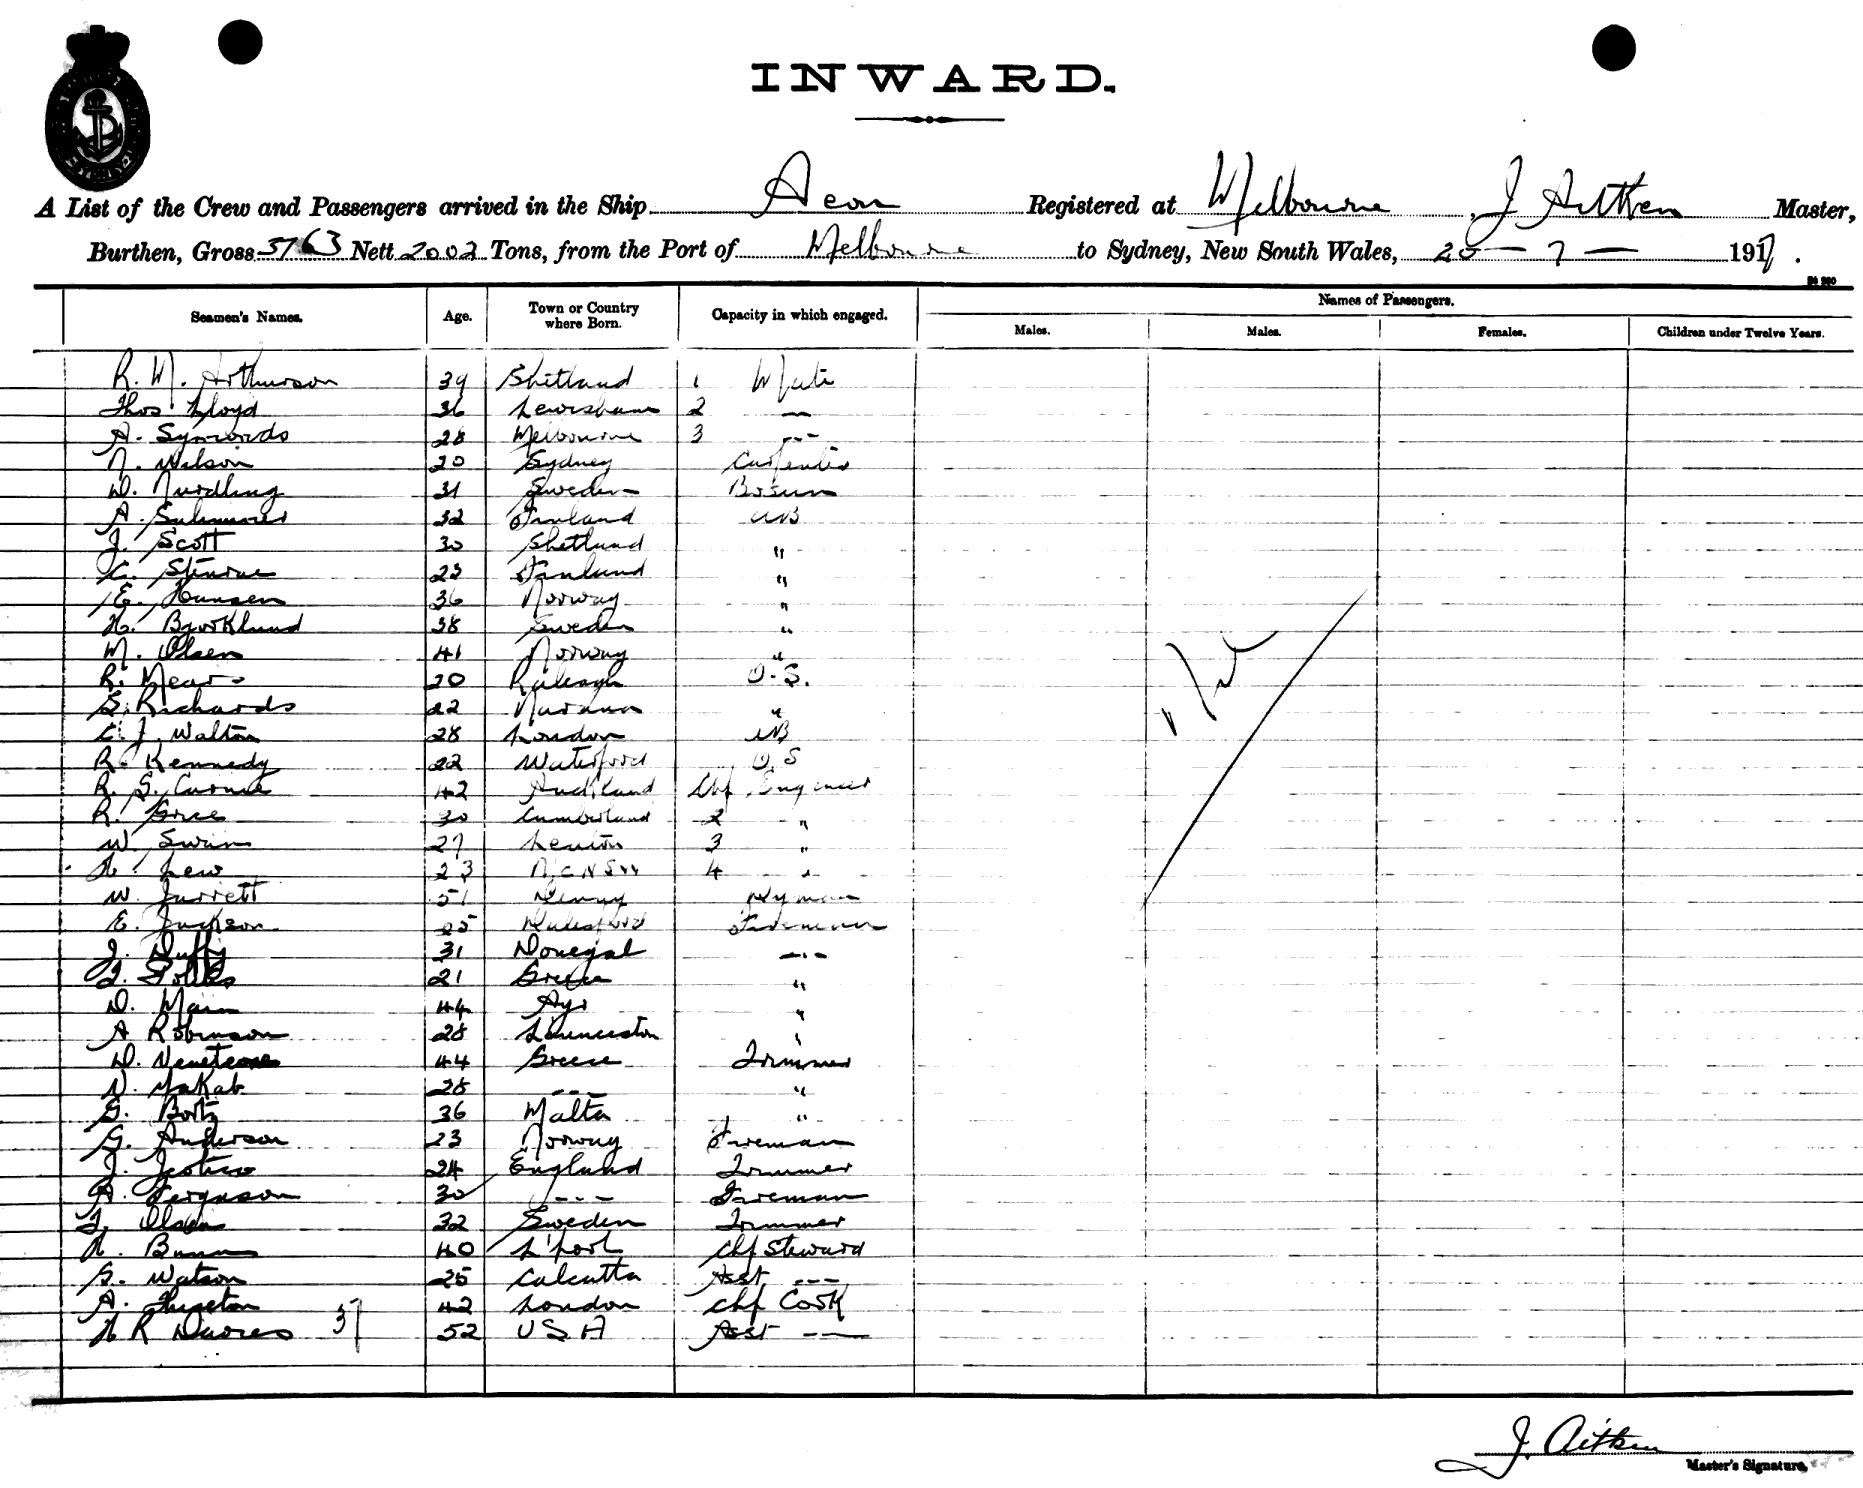 INWARD.
A List of the Crew and Passengers arrived in the Ship Aeon Registered at Melbourne, J Aitken Master,
Burthen, Gross 3763 Nett 2002 Tons, from the Port of Melbourne to Sydney, New South Wales, 20 - 7 - 1917.
Names of Passengers.
Seamen's Names. Age. Town or Country where Born. Capacity in which engaged. Males. Males. Females. Children under Twelve Years.
R. M. Arthurson 39 Shetland 1 Mate
Thos Lloyd 36 Lewisham 2 —
A. Symonds 28 Melbourne 3 ---
N. Wilson 20 Sydney Carpenter
D. Nurdling 31 Sweden Bosun
A. 32 Finland AB
J. Scott 30 Shetland "
C. 23 Finland "
E. Hansen 36 Norway "
H. Bjorklund 38 Sweden "
M. Olsen 41 Norway "
R. Mears 20 Raleigh O.S.
S. Richards 22 "
C. J. Walton 28 London AB
R. Kennedy 22 Waterford O.S
R. S. Currie 42 Auckland Chf Engineer
R. 30 Cumberland 2 "
W. Swan 27 3 "
H. Lew 23 N.C NSW 4 "
W. Jarrett 51 Denny Dyman
E. Jackson 25 Dalesford Fireman
J. Duffy 31 Donegal -.-
21 Greece "
D. Mann 44 Ayr "
A Robinson 28 Launceston "
D. 44 Greece Trimmer
D. Makab 28 --- "
G. 36 Malta "
G. Anderson 23 Norway Fireman
J. 24 England Trimmer
A. Ferguson 30 --- Fireman
J. Olsen 32 Sweden Trimmer
H. Bunn 40 L'pool Chf Steward
G. Watson 25 Calcutta Asst ---
A. 42 London Chf Cook
H R Davies 37 52 U S A Asst ---
J. Aitken
Master's Signature.